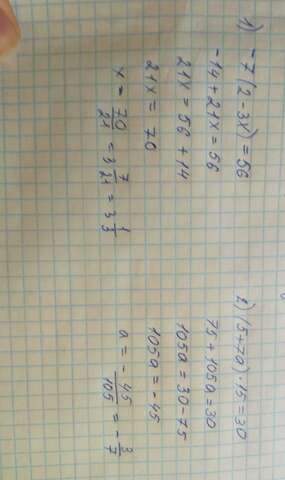 1) -7(2-3x)=56
-14+21x=56
21x=56+14
21x=70
x=70/21=3 7/21=3 1/3
2) (5+7a)·15=30
75+105a=30
105a=30-75
105a=-45
a=-45/105=-3/7